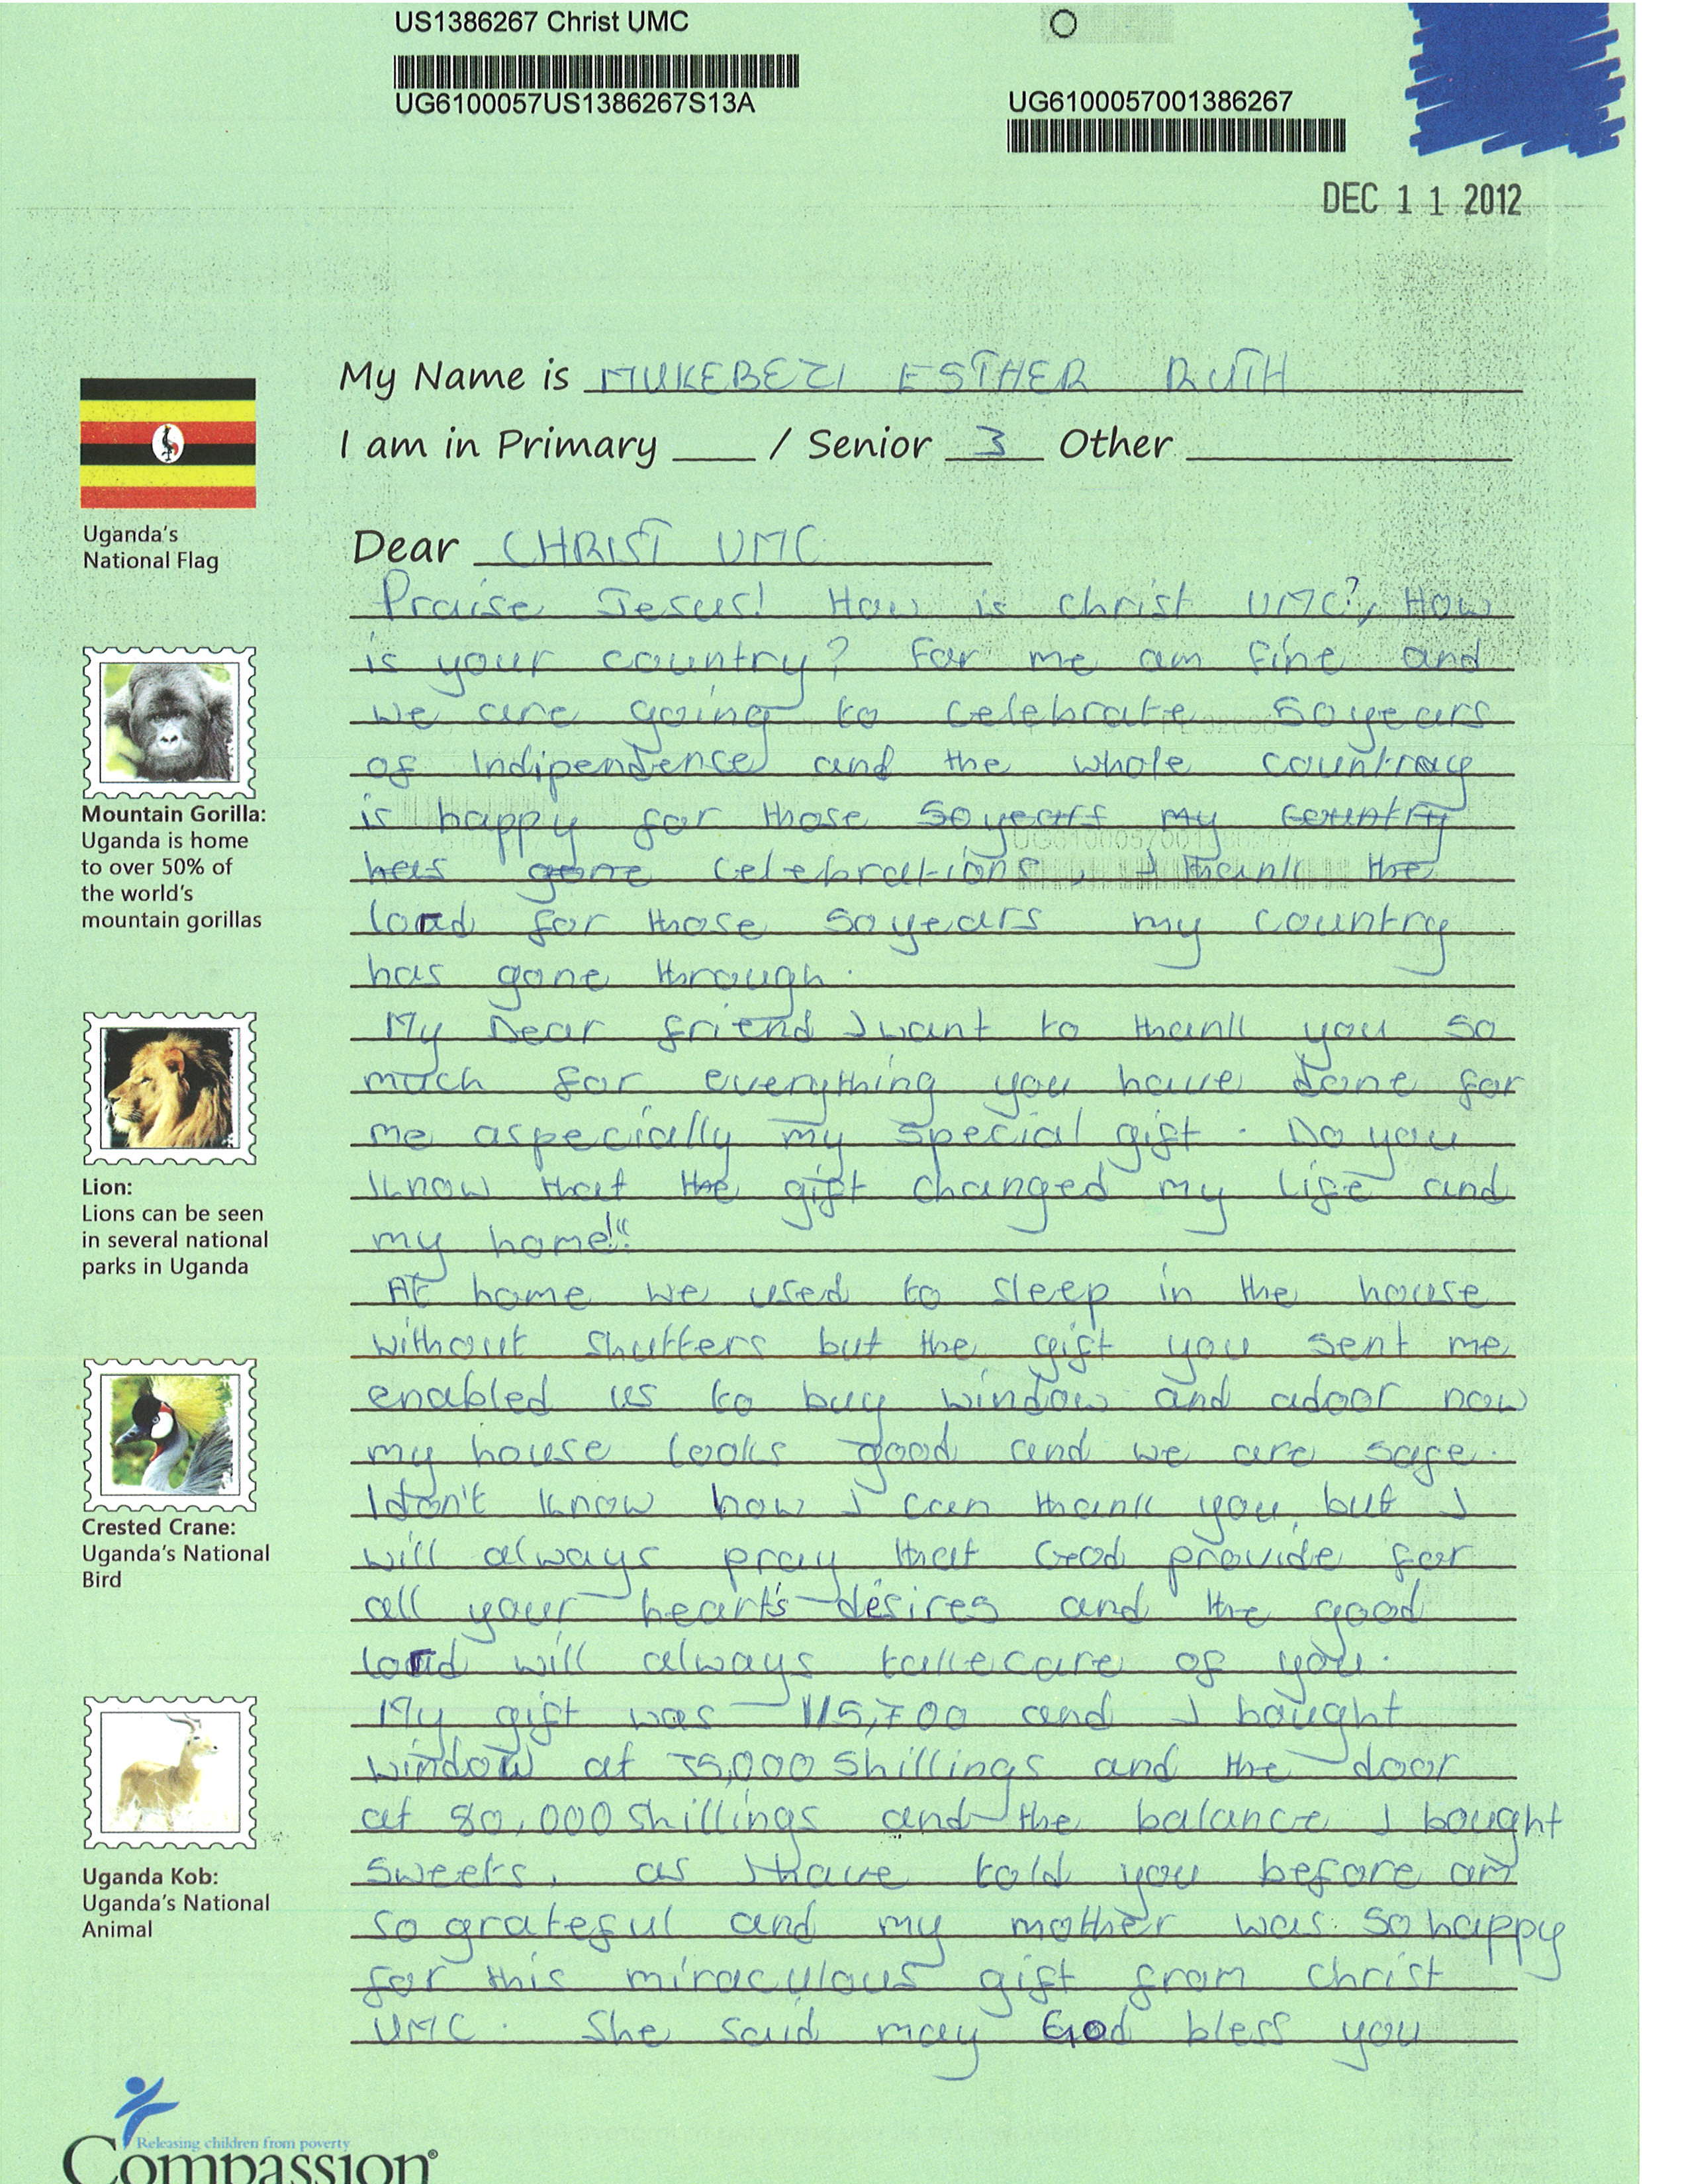 US1386267 Christ UMC
UG6100057US1386267S13A
UG6100057001386267
DEC 11 2012
My Name is MUKEBEZI ESTHER RUTH
I am in Primary ____ / Senior 3 Other ____
Dear CHRIST UMC
Praise Jesus! How is christ UMC?, How
is your country? For me am fine and
we are going to celebrate 50years
of Indipendence and the whole country
is happy for those 50years my country
has gone celebrations, I thank the
lord for those 50years my country
has gone through.
My Dear friend I want to thank you so
much for everything you have done for
me aspecially my special gift. Do you
know that the gift changed my life and
my home!"
At home we used to sleep in the house
without shutters but the gift you sent me
enabled us to buy window and adoor now
my house looks good and we are safe.
I don't know how I can thank you but I
will always pray that God provide for
all your heart's desires and the good
lord will always takecare of you.
My gift was 115,700 and I bought
window at 35,000 shillings and the door
at 80,000 shillings and the balance I bought
sweets, as I have told you before am
so grateful and my mother was so happy
for this miraculous gift from christ
UMC. She said may God bless you
Uganda's
National Flag
Mountain Gorilla:
Uganda is home
to over 50% of
the world's
mountain gorillas
Lion:
Lions can be seen
in several national
parks in Uganda
Crested Crane:
Uganda's National
Bird
Uganda Kob:
Uganda's National
Animal
Releasing children from poverty
Compassion®